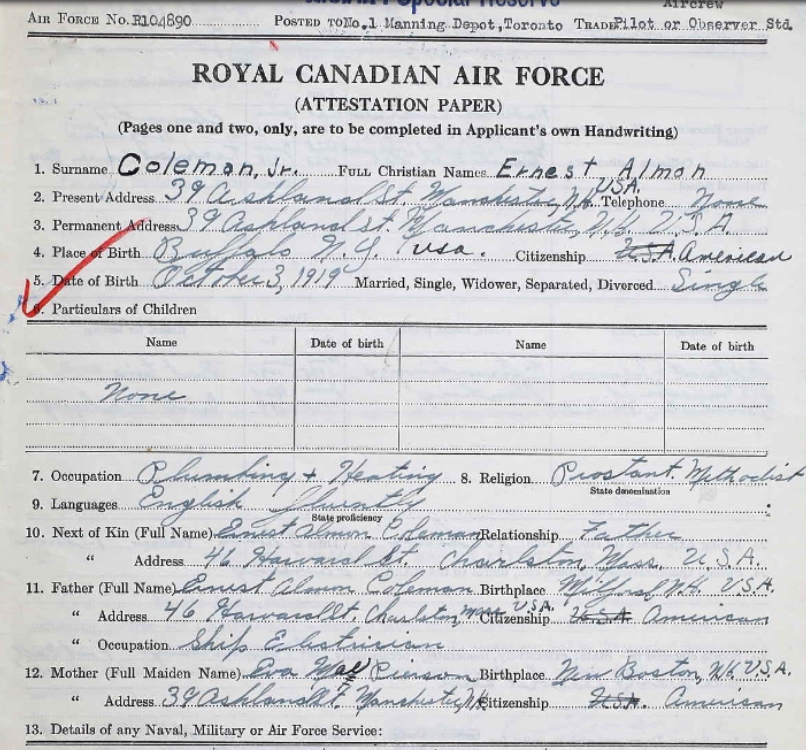 Special Reserve
Aircrew
AIR FORCE No. R104890 POSTED TO No.1 Manning Depot, Toronto TRADE Pilot or Observer Std.
ROYAL CANADIAN AIR FORCE
(ATTESTATION PAPER)
(Pages one and two, only, are to be completed in Applicant's own Handwriting)
1. Surname Coleman, Jr. FULL Christian Names Ernest Almon
2. Present Address 39 Ashland St. Manchester, N.H. USA. Telephone None
3. Permanent Address 39 Ashland St. Manchester, N.H. U.S.A.
4. Place of Birth Buffalo N.Y. USA. Citizenship U.S.A. American
5. Date of Birth October 3, 1919 Married, Single, Widower, Separated, Divorced Single
6. Particulars of Children
Name Date of birth Name Date of birth
None
7. Occupation Plumbing + Heating 8. Religion Prostant. Methodist
State denomination
9. Languages English fluently
State proficiency
10. Next of Kin (Full Name) Ernest Almon Coleman Relationship Father
" Address 46 Harvard St. Charlston, Mass. U.S.A.
11. Father (Full Name) Ernest Almon Coleman Birthplace Milford, N.H. U.S.A.
" Address 46 Harvard St. Charlston, Mass U.S.A. Citizenship U.S.A. American
" Occupation Ship Electrician
12. Mother (Full Maiden Name) Eva May Pierson Birthplace New Boston, N.H. U.S.A.
" Address 39 Ashland St. Manchester, N.H. Citizenship U.S.A. American
13. Details of any Naval, Military or Air Force Service: